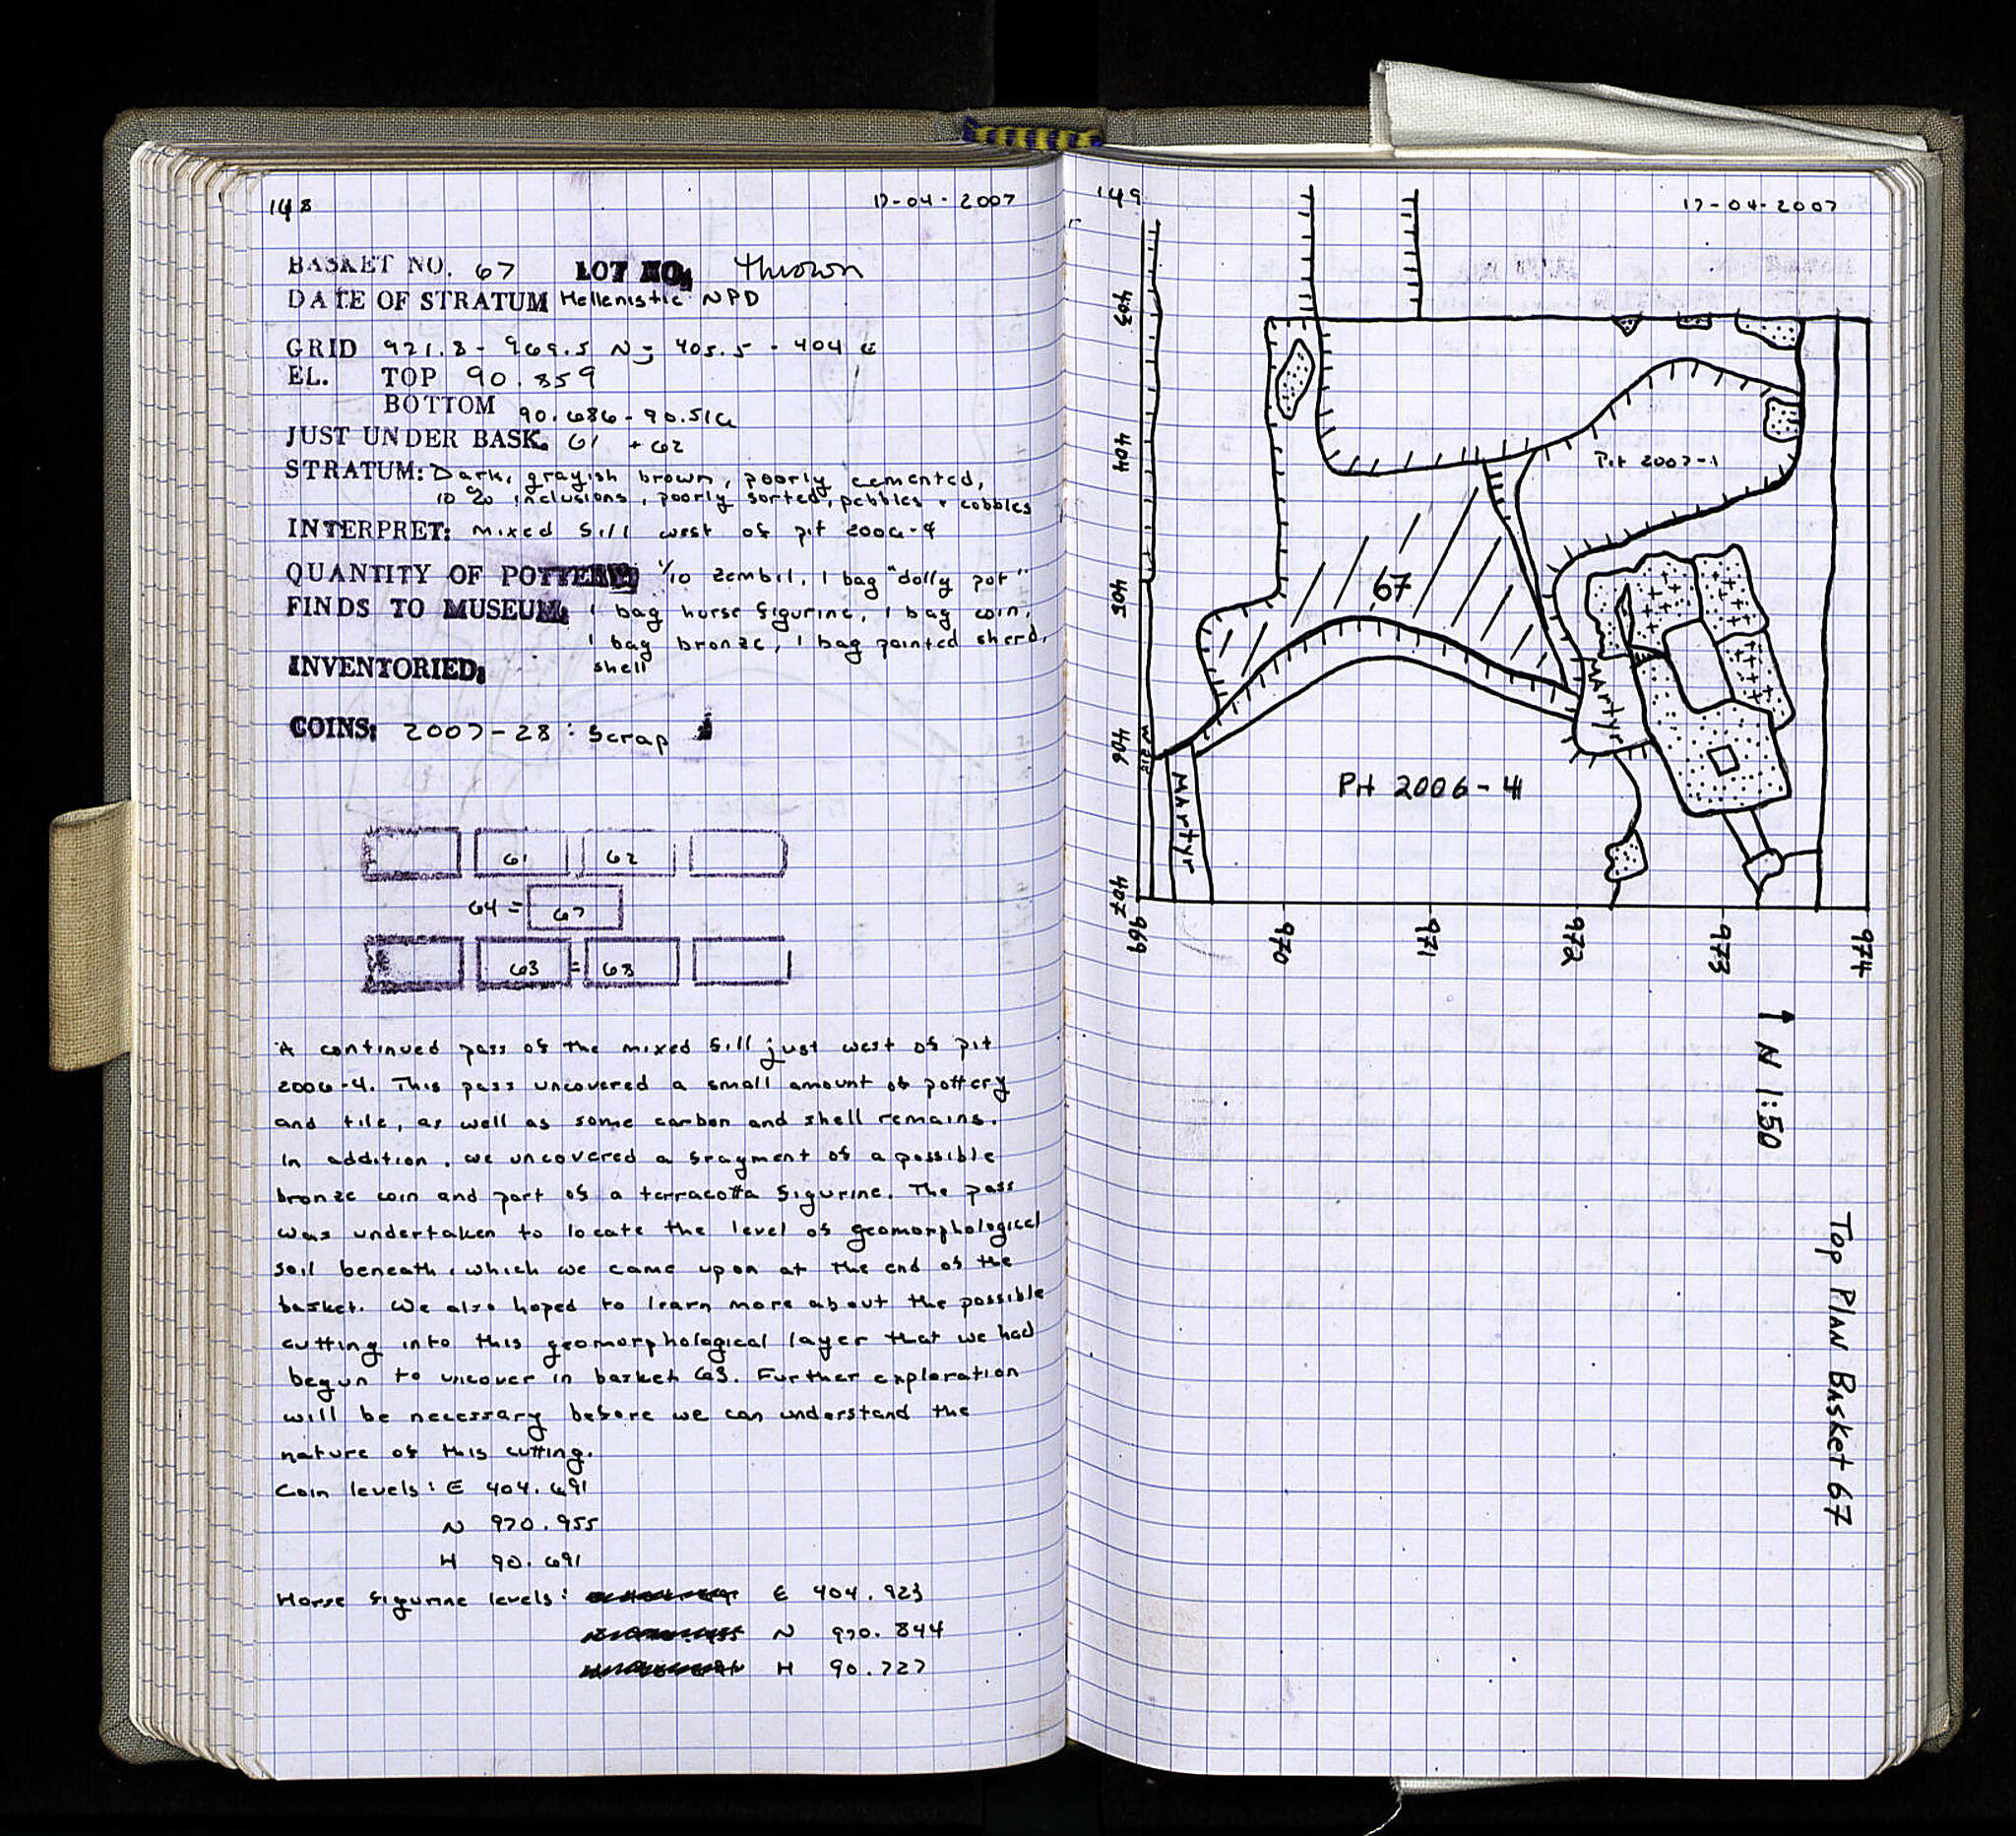 148 17-04-2007
BASKET NO. 67 LOT NO. thrown
DATE OF STRATUM Hellenistic NPD
GRID 971.8 - 969.5 N ; 405.5 - 404 E
EL. TOP 90.859
BOTTOM 90.686 - 90.516
JUST UNDER BASK. 61 + 62
STRATUM: Dark, grayish brown, poorly cemented,
10% inclusions, poorly sorted, pebbles + cobbles
INTERPRET: mixed fill west of pit 2006-4
QUANTITY OF POTTERY 1/10 zembil, 1 bag "dolly pot"
FINDS TO MUSEUM: 1 bag horse figurine, 1 bag coin,
1 bag bronze, 1 bag painted sherd,
shell
INVENTORIED:
COINS: 2007-28 : Scrap
61 62
64 = 67
63 = 68
A continued pass of the mixed fill just west of pit
2006-4. This pass uncovered a small amount of pottery
and tile, as well as some carbon and shell remains.
In addition, we uncovered a fragment of a possible
bronze coin and part of a terracotta figurine. The pass
was undertaken to locate the level of geomorphological
soil beneath, which we came upon at the end of the
basket. We also hoped to learn more about the possible
cutting into this geomorphological layer that we had
begun to uncover in basket 63. Further exploration
will be necessary before we can understand the
nature of this cutting.
Coin levels: E 404.691
N 970.955
H 90.691
Horse figurine levels: E 404.923
N 970.844
H 90.727
149 17-04-2007
403
404
405
406
407
Pit 2007-1
67
Martyr
Pit 2006-4
Martyr
969
970
971
972
973
974
N 1:50
Top Plan Basket 67